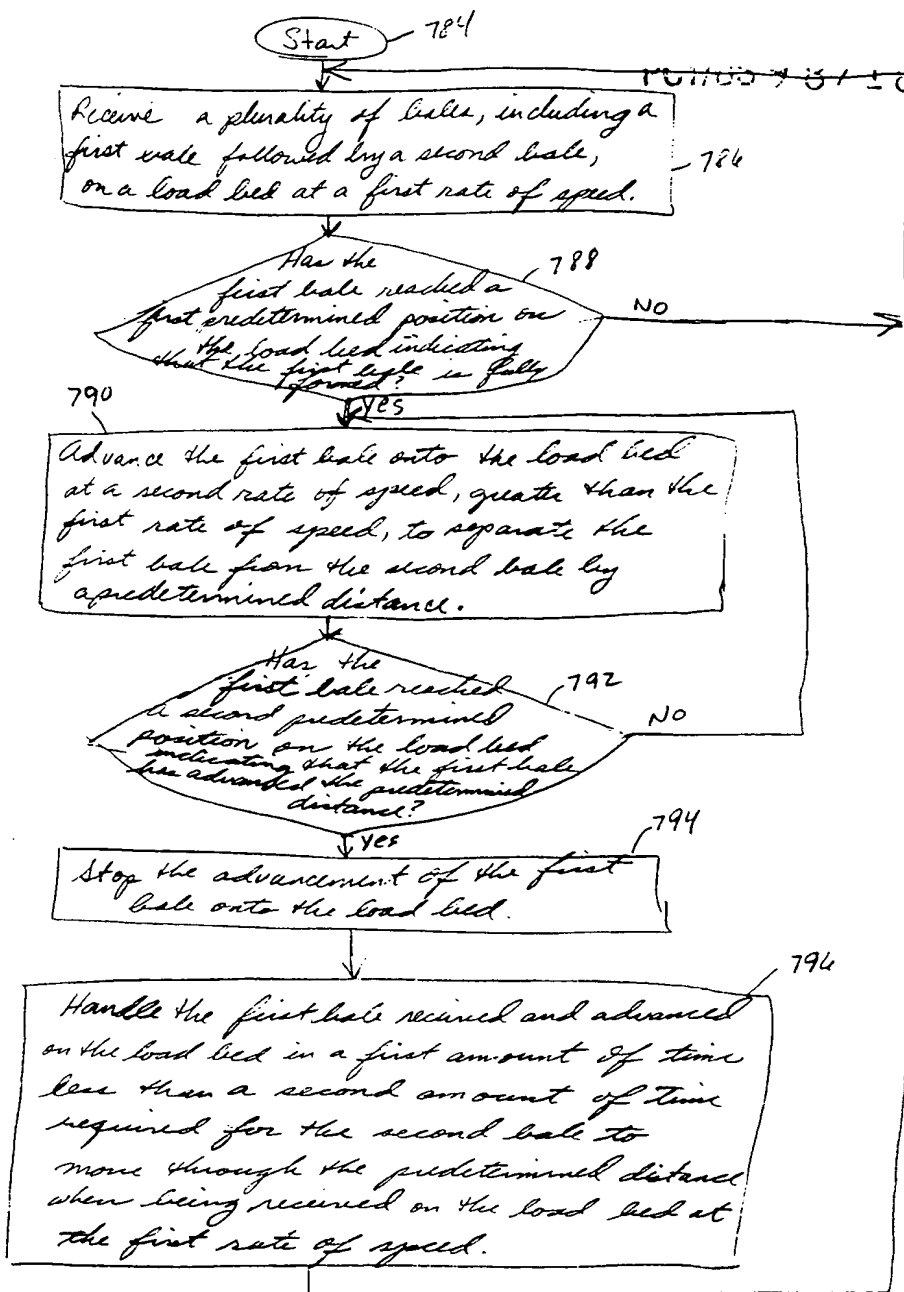 Start
784
Receive a plurality of bales, including a
first bale followed by a second bale,
on a load bed at a first rate of speed.
786
Has the
first bale reached a
first predetermined position on
the load bed indicating
that the first bale is fully
formed?
788
NO
yes
790
Advance the first bale onto the load bed
at a second rate of speed, greater than the
first rate of speed, to separate the
first bale from the second bale by
a predetermined distance.
Has the
first bale reached
a second predetermined
position on the load bed
indicating that the first bale
has advanced the predetermined
distance?
792
NO
yes
794
Stop the advancement of the first
bale onto the load bed.
796
Handle the first bale received and advanced
on the load bed in a first amount of time
less than a second amount of time
required for the second bale to
move through the predetermined distance
when being received on the load bed at
the first rate of speed.